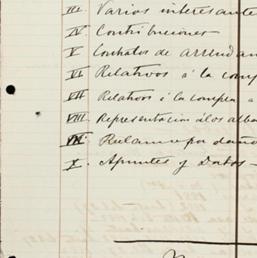 III. Varios interesante
IV Contribuciones
V Contratos de arrendam
VI Relativos á la comp
VII Relativos á la compra a
VIII Representacion á los alba
Reclamo por daño
X. Apuntes y Datos –